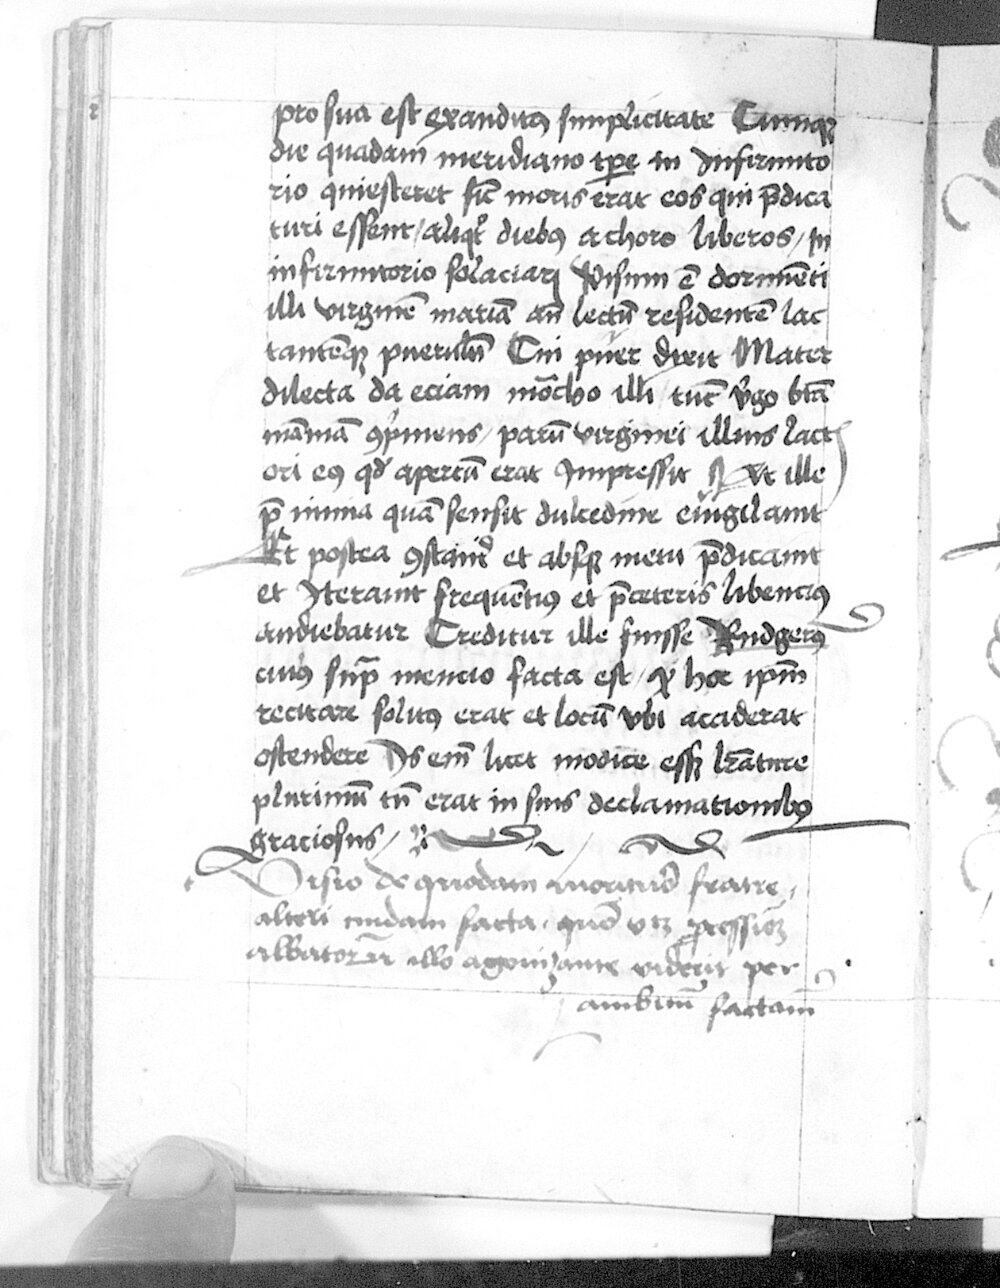 pro sua est exauditꝰ simplicitate Cumqꝫ
die quadam̄ meridiano tp̄e in Infirmito
rio quiesceret sic̄ moris erat eos qui p̄dica
turi essent / aliqt͛ diebꝰ a choro liberos / In
infirmitorio solaciari Visum ē dormiēti
illi virginē mariā an̄ lectū residentē lac
tantēqꝫ puerulū Cui puer dixit Mater
dilecta da eciam mōcho illi / tūc v͛go btā
māmā ꝯp͛mens / parū virginei illius lact͛
ori eꝰ qd͛ apertū erat Impressit Vt ille
p̄ nimia quā sensit dulcedine euigilauit
Et postea ꝯstant͛ et absqꝫ metu p̄dicauit
et Iterauit frequētiꝰ et p̄ceteris libenciꝰ
audiebatur Creditur ille fuisse Rudgerꝰ
cuiꝰ sup̄ mencio facta est / qr͛ hoc ip̄m
recitare solitꝰ erat et locū vbi acciderat
ostendere Is em̄ licet modice essꝫ lr̄ature
plurimū tn̄ erat in suis declamationibꝰ
graciosus /
Visio de quodam morituro fratre /
alteri cuidam facta / quō vcꝫ p̄cessionē
albatorum illo agonizante viderit per
ambitū factam̄